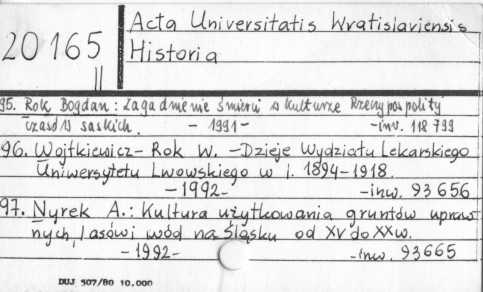 20165
II
Acta Universitatis Wratislaviensis
Historia
95. Rok Bogdan: Zagadnienie śmierci w kulturze Rzeczypospolity
czasów saskich. - 1991 - -inv. 118 799
96. Wojtkiewicz-Rok W. - Dzieje Wydziału Lekarskiego
Uniwersytetu Lwowskiego w l. 1894-1918.
-1992- -inw. 93 656
97. Nyrek A.: Kultura użytkowania gruntów upraw
nych, lasów i wód na Śląsku od XV do XXw.
-1992- -inw. 93665
DUJ 507/80 10.000